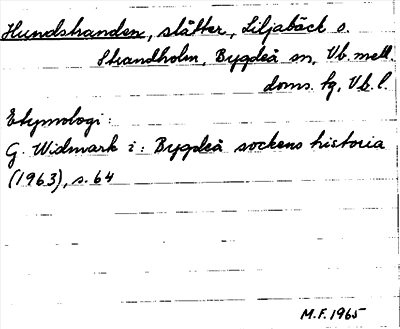 Hundstranden, slåtter, Liljabäck o.
Strandholm, Bygdeå sn, Vb. mell.
doms. tg, Vb. l.
Etymologi:
G. Widmark i: Bygdeå sockens historia
(1963), s. 64
M.F. 1965